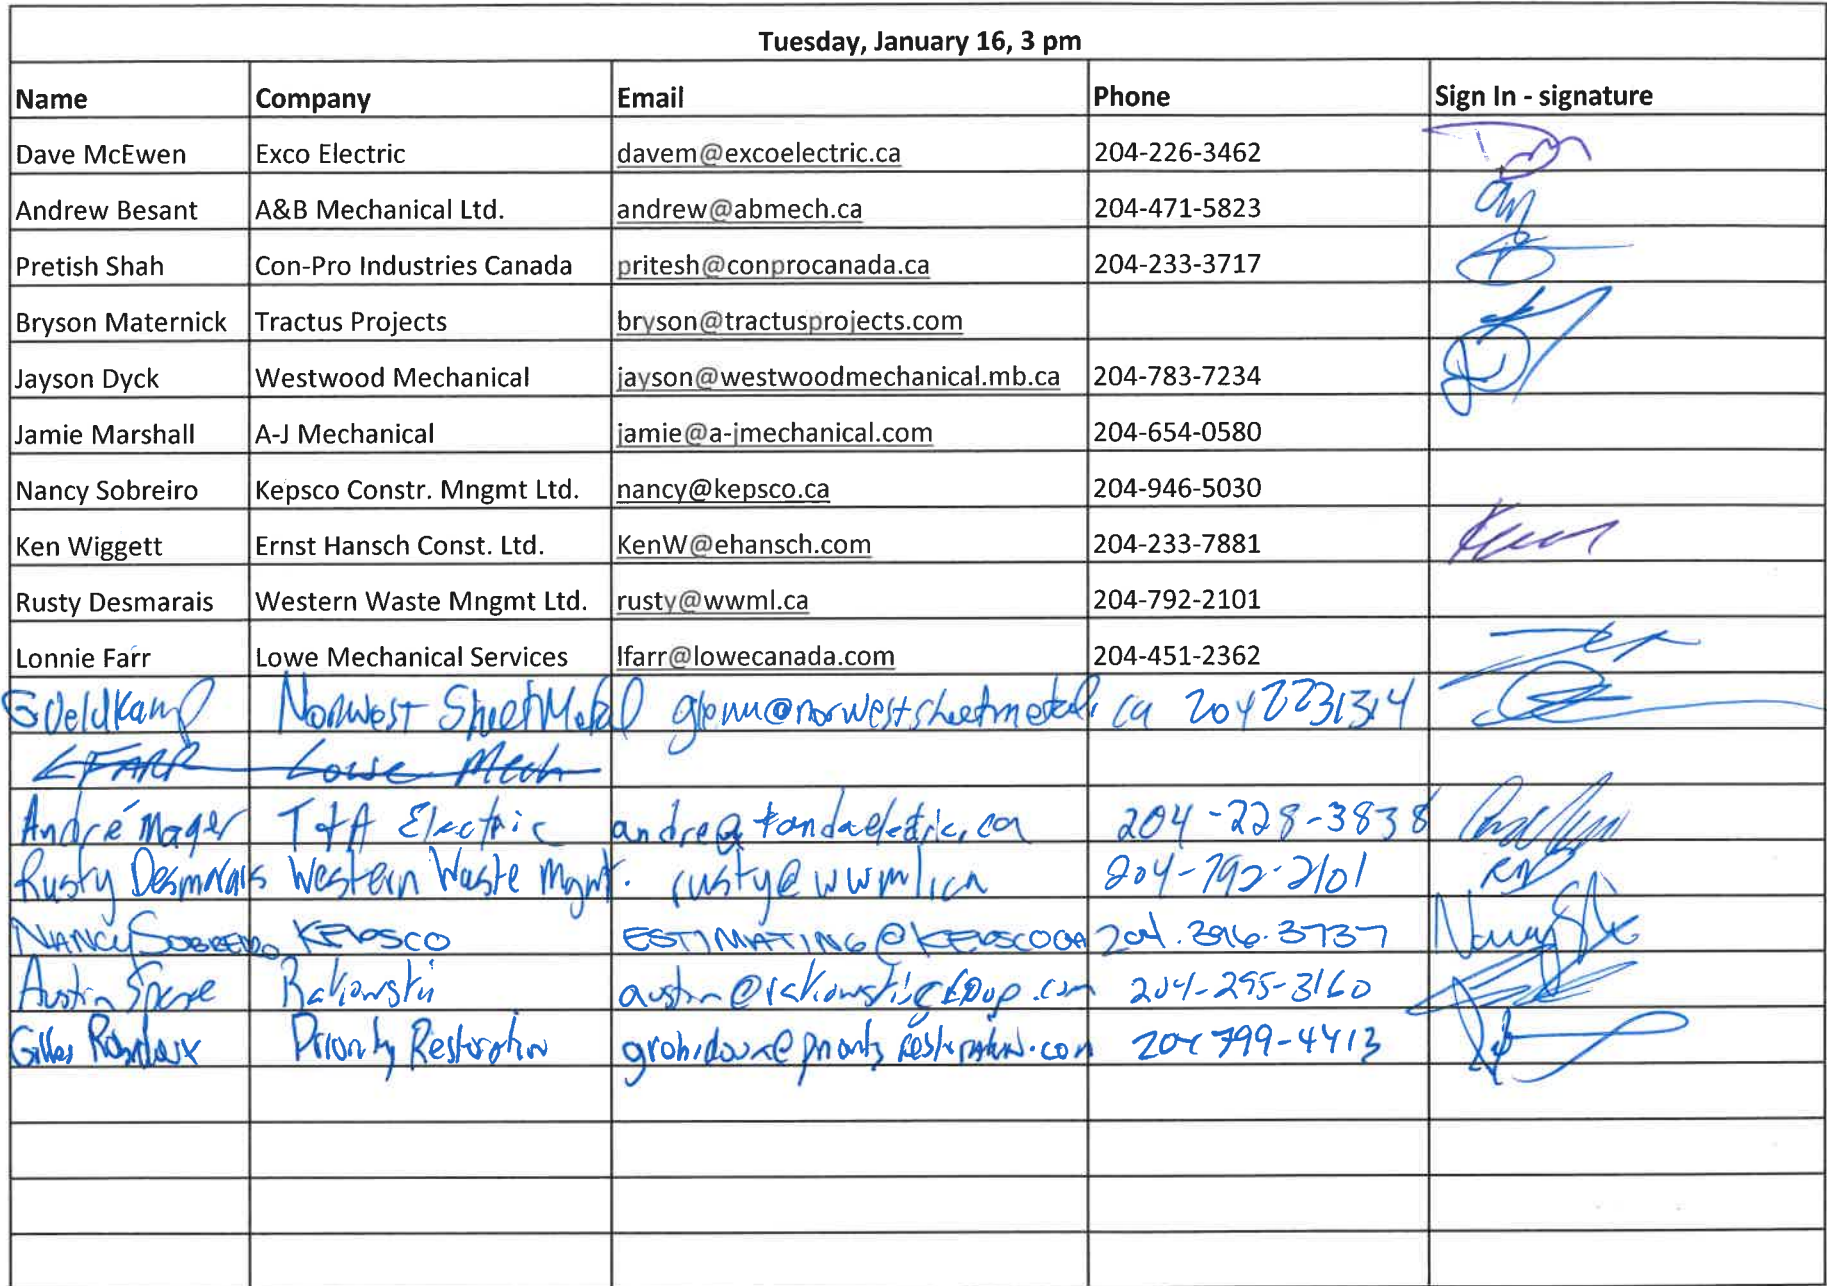 Tuesday, January 16, 3 pm
Name Company Email Phone Sign In - signature
Dave McEwen Exco Electric davem@excoelectric.ca 204-226-3462
Andrew Besant A&B Mechanical Ltd. andrew@abmech.ca 204-471-5823
Pretish Shah Con-Pro Industries Canada pritesh@conprocanada.ca 204-233-3717
Bryson Maternick Tractus Projects bryson@tractusprojects.com
Jayson Dyck Westwood Mechanical jayson@westwoodmechanical.mb.ca 204-783-7234
Jamie Marshall A-J Mechanical jamie@a-jmechanical.com 204-654-0580
Nancy Sobreiro Kepsco Constr. Mngmt Ltd. nancy@kepsco.ca 204-946-5030
Ken Wiggett Ernst Hansch Const. Ltd. KenW@ehansch.com 204-233-7881 Ken
Rusty Desmarais Western Waste Mngmt Ltd. rusty@wwml.ca 204-792-2101
Lonnie Farr Lowe Mechanical Services lfarr@lowecanada.com 204-451-2362
GVeldkamp Norwest SheetMetal glenn@norwestsheetmetal.ca 2042231314
LFARR Lowe Mech
André Mager T+A Electric andre@tandaelectric.ca 204-228-3838
Rusty Desmarais Western Waste Mgmt. rusty@wwml.ca 204-792-2101 RD
NANCY SOBREIRO KEPSCO ESTIMATING@KEPSCO.CA 204.396.3737 Nancy
Austin Rakowski austin@rakowskigroup.com 204-295-3160
Gilles Priority Restoration 204 799-4413